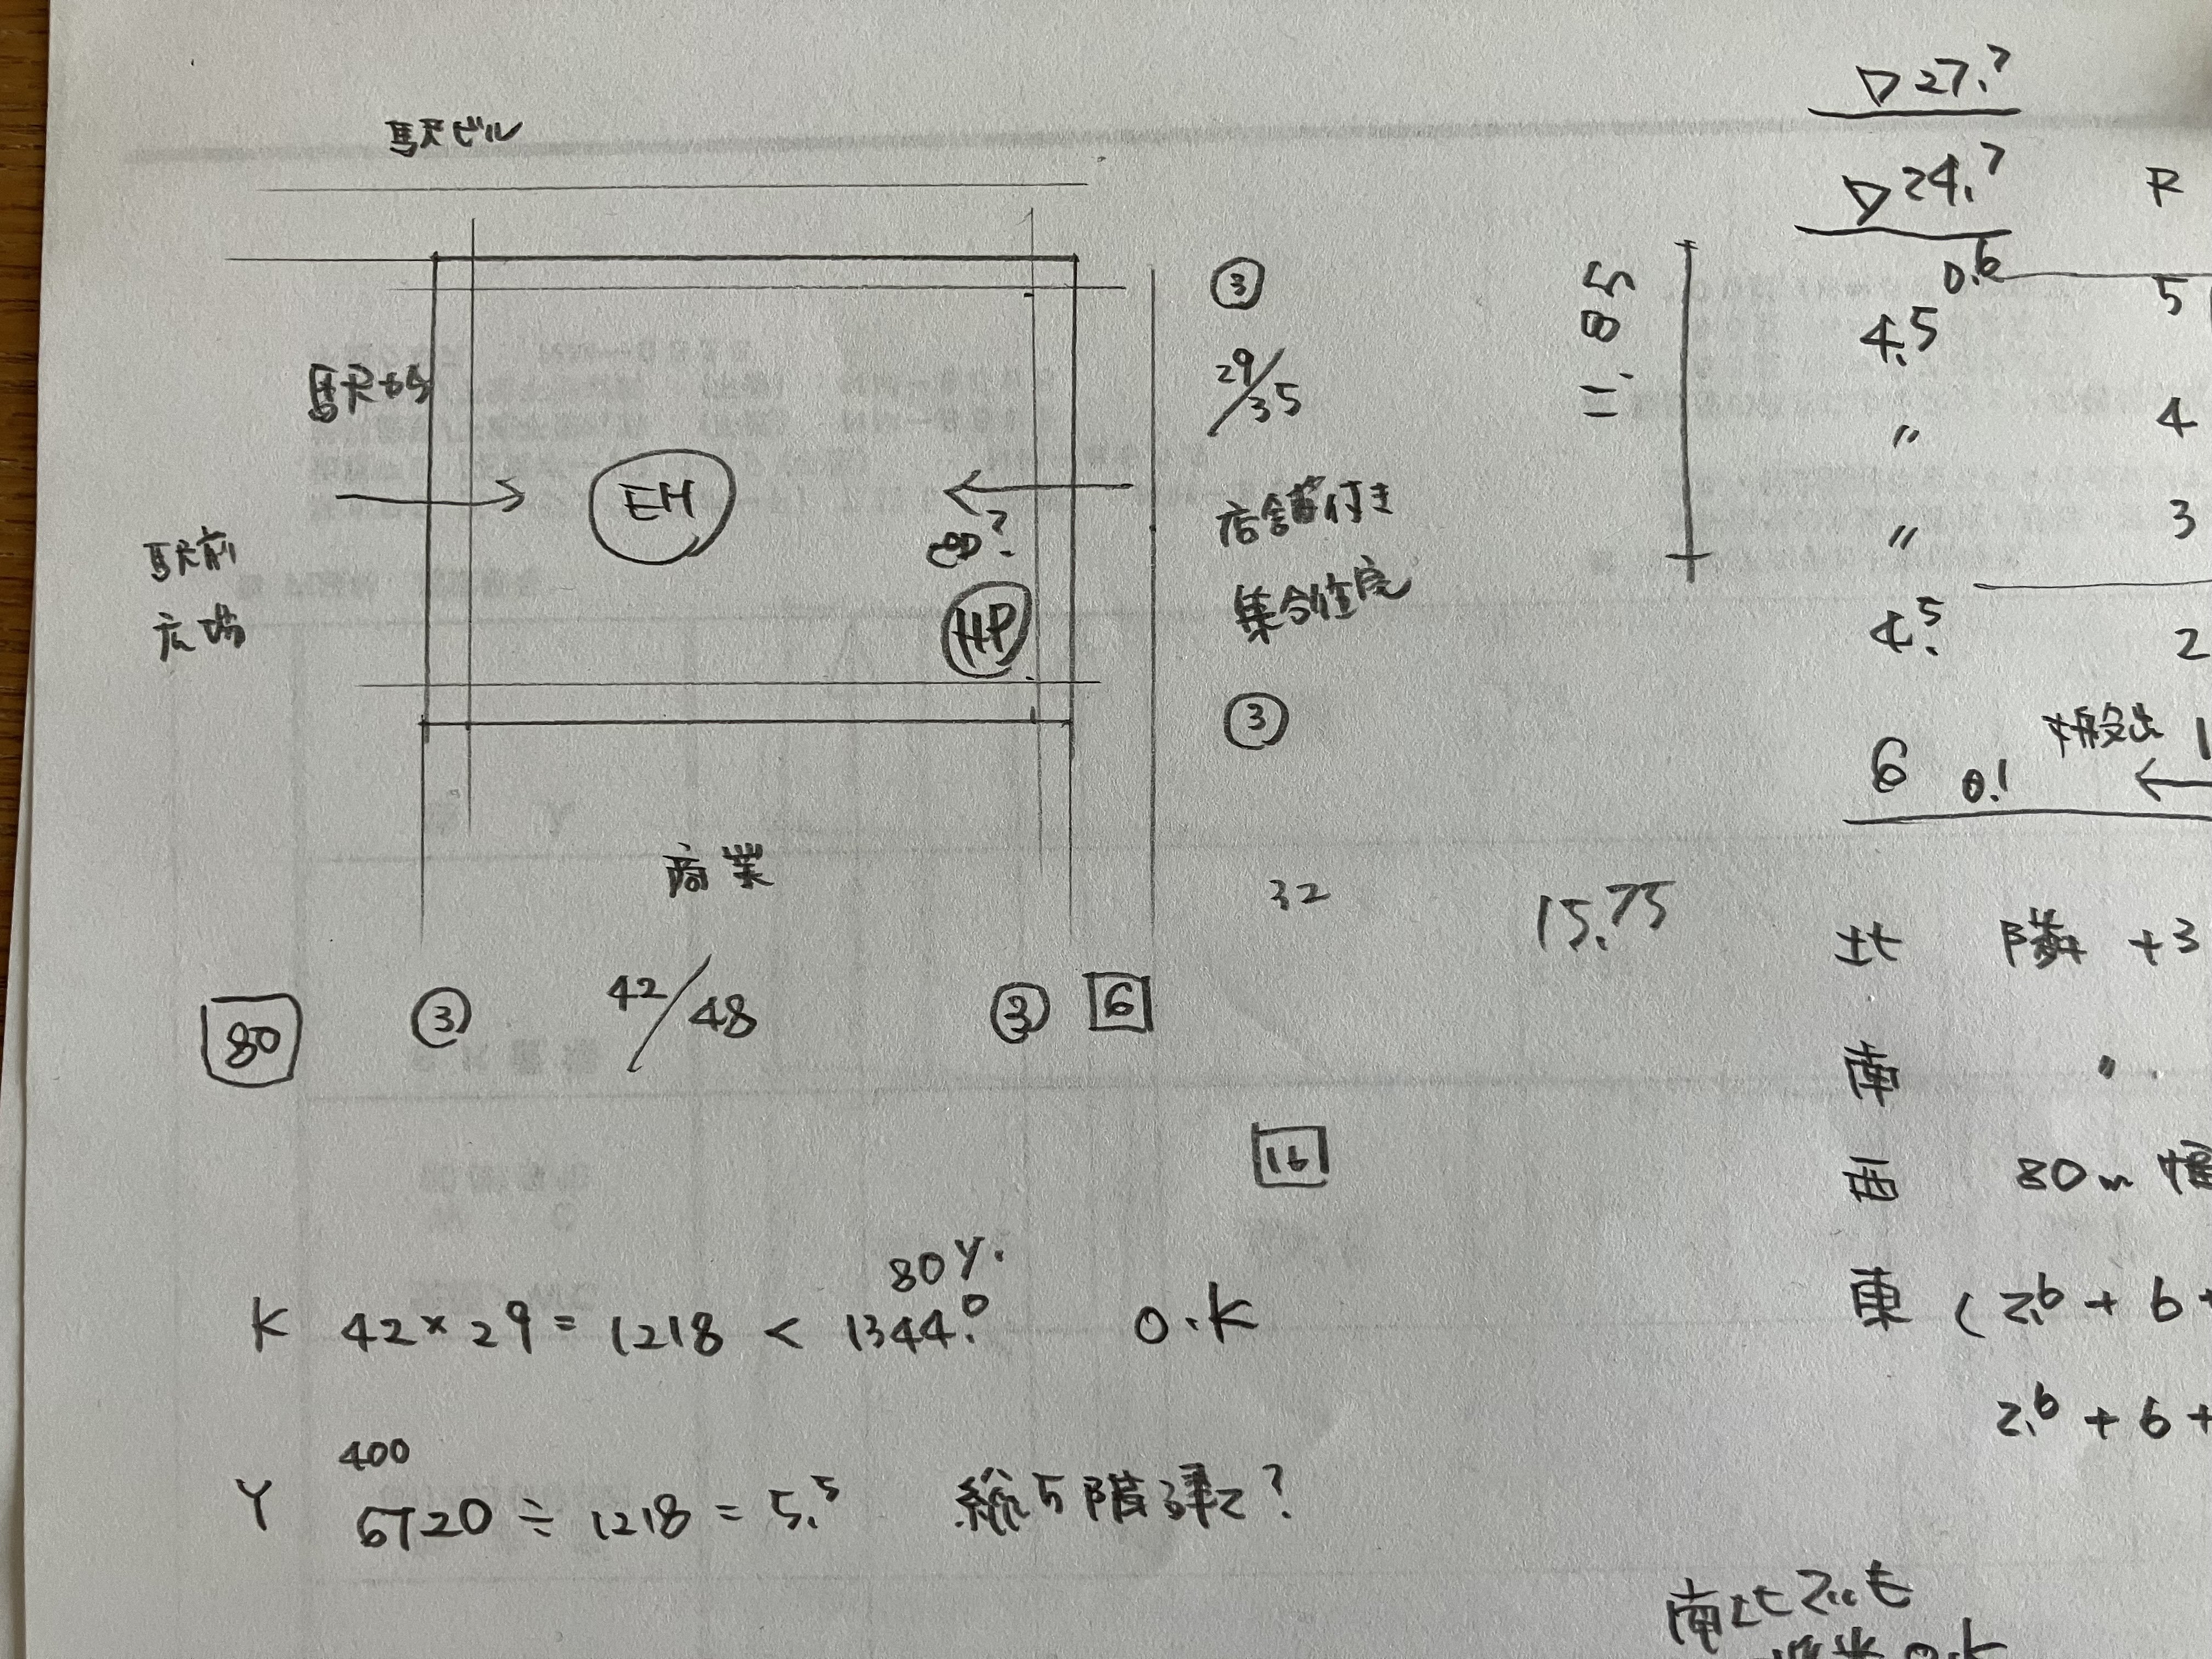 駅ビル
駅から
EH
駅前
広場
HP
③
29/35
店舗付き
集合住宅
③
商業
32
80
③
42/48
③
6
16
80%
K 42×29=1218 < 1344.0 O.K
400
Y 6720÷1218=5.5 総5階建て?
▽27.?
▽24.? R
0.6
4.5 5
〃 4
〃 3
4.5 2
6 0.1 搬出 1
←
15.75
北 隣 +3
南 〃
西 80m 幅
東 (2.6+6+
2.6+6+
南北
O.K